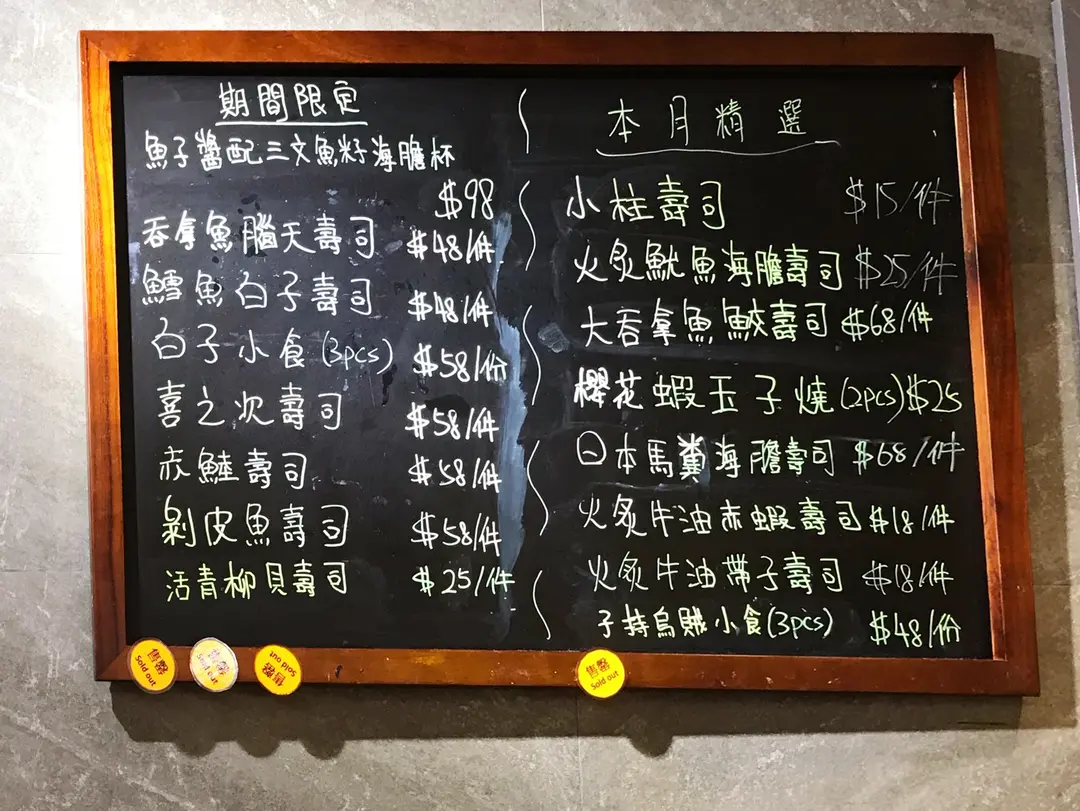 期間限定
魚子醬配三文魚籽海膽杯
$98
吞拿魚腦天壽司 $48/件
鱈魚白子壽司 $48/件
白子小食(3pcs) $58/份
喜之次壽司 $58/件
赤鯥壽司 $58/件
剝皮魚壽司 $58/件
活青柳貝壽司 $25/件
本月精選
小柱壽司 $15/件
火炙魷魚海膽壽司 $25/件
大吞拿魚鮫壽司 $68/件
櫻花蝦玉子燒(2pcs) $25
日本馬糞海膽壽司 $68/件
火炙牛油赤蝦壽司 $18/件
火炙牛油帶子壽司 $18/件
子持烏賊小食(3pcs) $48/份
售罄
Sold out
售罄
Sold out
售罄
Sold out
售罄
Sold out